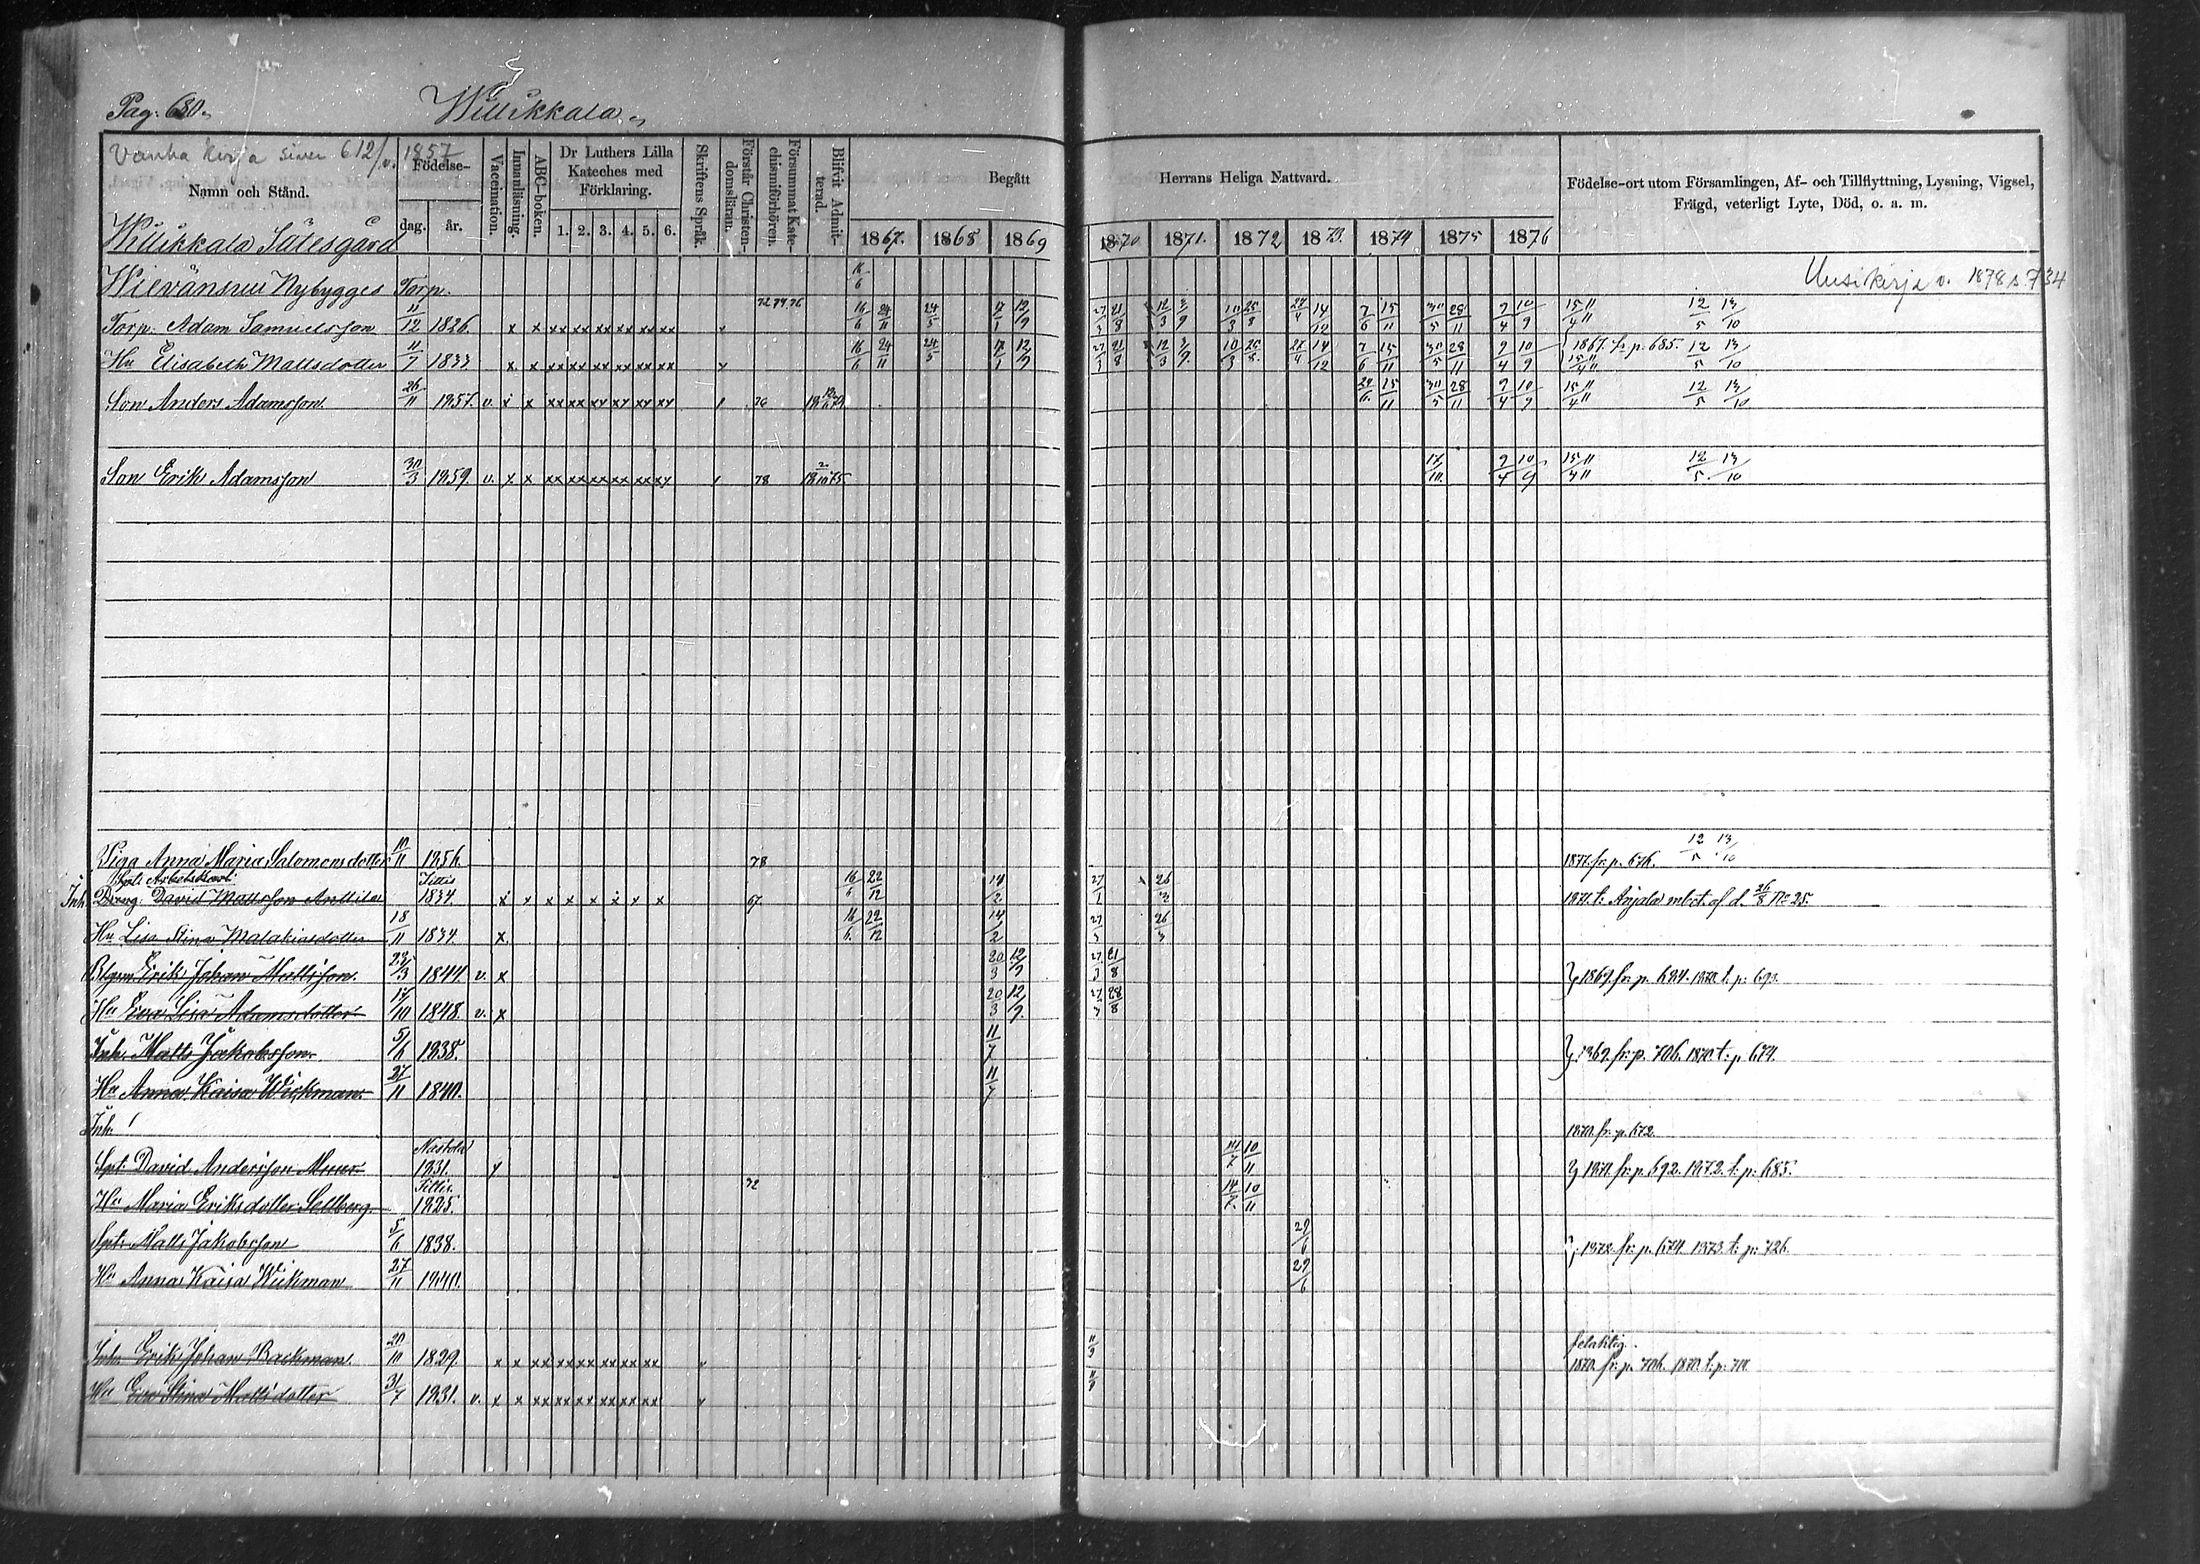 Pag: 680. Willikkala.
Vanha kirja sivu 612/v. 1857
Namn och Stånd. Födelse- dag. år. Vaccination. Innanläsning. ABC-boken. Dr Luthers Lilla Kateches med Förklaring. 1. 2. 3. 4. 5. 6. Skriftens Språk. Förstår Christendomsläran. Försummat Katechismiförhören. Blifvit Admitterad. Begått Herrans Heliga Nattvard. Födelse-ort utom Församlingen, Af- och Tillflyttning, Lysning, Vigsel, Frägd, veterligt Lyte, Död, o. a. m.
Willikkala Sätesgård 1867. 1868 1869 1870 1871. 1872 1873. 1874 1875 1876
Nybygges Torp. 16/6 Uusi kirja v. 1878 s. 734
72 74 76
Torp. Adam Samuelsson 11/12 1826. x x xx xx xx xx xx xx 16/6 24/11 24/5 12/9 27/3 21/8 12/3 3/9 10/3 25/8 27/4 14/12 7/6 15/11 30/5 28/11 9/4 10/9 15/4 12/5 13/10
Hu Elisabeth Mattsdotter 11/7 1833 x x xx xx xx xx xx xx 16/6 24/11 24/5 12/9 27/3 21/8 12/3 3/9 10/3 25/8 27/4 14/12 7/6 15/11 30/5 28/11 9/4 10/9 1867. fr. p. 685. 15/4 12/5 13/10
Son Anders Adamsson 26/11 1857. v. x x xx xx xx xx xx xx 76 15/11 30/5 28/11 9/4 10/9 15/4 12/5 13/10
Son Erik Adamsson 30/3 1859. v. x x xx xx xx xx xx xx 78 9/4 10/9 15/4 12/5 13/10
Piga Anna Maria Salomonsdotter 10/11 1856. 78 1877. fr. p. 676. 12/5 13/10
Arbetskarl Jittis
Inh. Dreng. David Mattsson Anttila 1834. x x x x x x x x 67. 16/6 22/12 14/2 27/3 26/3 1871. t. Anjala m. bet. af d. 26/8 No 25.
Hu Lisa Stina Malakiasdotter 18/11 1834. x 16/6 22/12 14/2 27/3 26/3
Erik Johan Mattsson. 23/3 1844. v. x 20/3 12/9 27/3 21/8 1869. fr. p. 684. 1870. t. p. 693.
Hu Eva Lisa Adamsdotter 14/10 1848. v. x 20/3 12/9 27/3 28/8
Inh. Matts Jakobsson. 5/6 1838. 11/7 1869. fr. p. 706. 1870. t. p. 674.
Hu Anna Kaisa Wickman. 27/11 1840. 11/7
Inh. 1870. fr. p. 672.
Nastola
Spt. David Andersson Muur 1831. x 14/7 10/11 1871. fr. p. 692. 1872. t. p. 685.
Jittis
Hu Maria Eriksdotter Sellberg 1825. 72 14/7 10/11
Spt. Matts Jakobsson 5/6 1838. 29/6 1872. fr. p. 674. 1873. t. p. 726.
Hu Anna Kaisa Wickman 27/11 1840. 29/6
felaktig.
Inh. Erik Johan Backman. 20/10 1829. x x xx xx xx xx xx xx 11/9 1870. fr. p. 706. 1870. t. p. 711.
Hu Eva Stina Mattsdotter 31/7 1831. v. x x xx xx xx xx xx xx 11/9